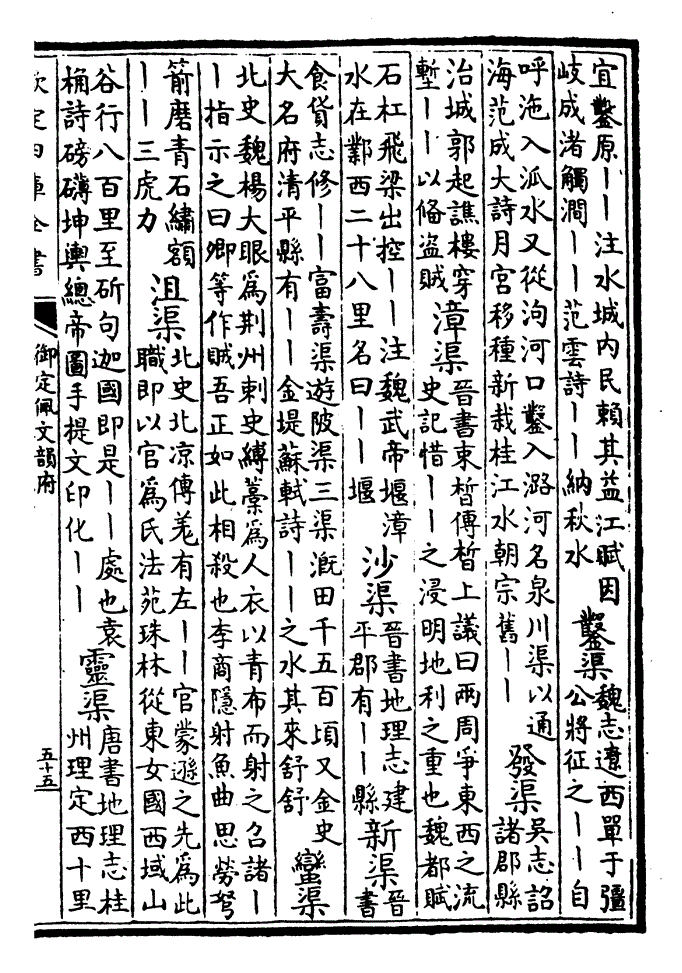 宜鑿原丨丨注水城内民賴其益江賦因
岐成渚觸澗丨丨范雲詩丨丨納秋水
鑿渠
魏志遼西單于彊
公將征之丨丨自
呼沲入泒水又從泃河口鑿入潞河名泉川渠以通
海范成大詩月宮移種新栽桂江水朝宗舊丨丨
發渠
吳志詔
諸郡縣
治城郭起譙樓穿
塹丨丨以備盜賊
漳渠
晉書束晳傳晳上議曰兩周爭東西之流
史記惜丨丨之浸明地利之重也魏都賦
石杠飛梁出控丨丨注魏武帝堰漳
水在鄴西二十八里名曰丨丨堰
沙渠
晉書地理志建
平郡有丨丨縣
新渠
晉
書
食貨志修丨丨富壽渠遊陂渠三渠溉田千五百頃又金史
大名府清平縣有丨丨金堤蘇軾詩丨丨之水其來舒舒
蠻渠
北史魏楊大眼爲荆州刺史縛藁爲人衣以青布而射之召諸丨
丨指示之曰卿等作賊吾正如此相殺也李商隱射魚曲思勞弩
箭磨青石繡額
丨丨三虎力
沮渠
北史北凉傳羌有左丨丨官蒙遜之先爲此
職即以官爲氏法苑珠林從東女國西域山
谷行八百里至斫句迦國即是丨丨處也袁
桷詩磅礴坤輿總帝圖手提文印化丨丨
靈渠
唐書地理志桂
州理定西十里
欽定四庫全書
御定佩文韻府
五十五